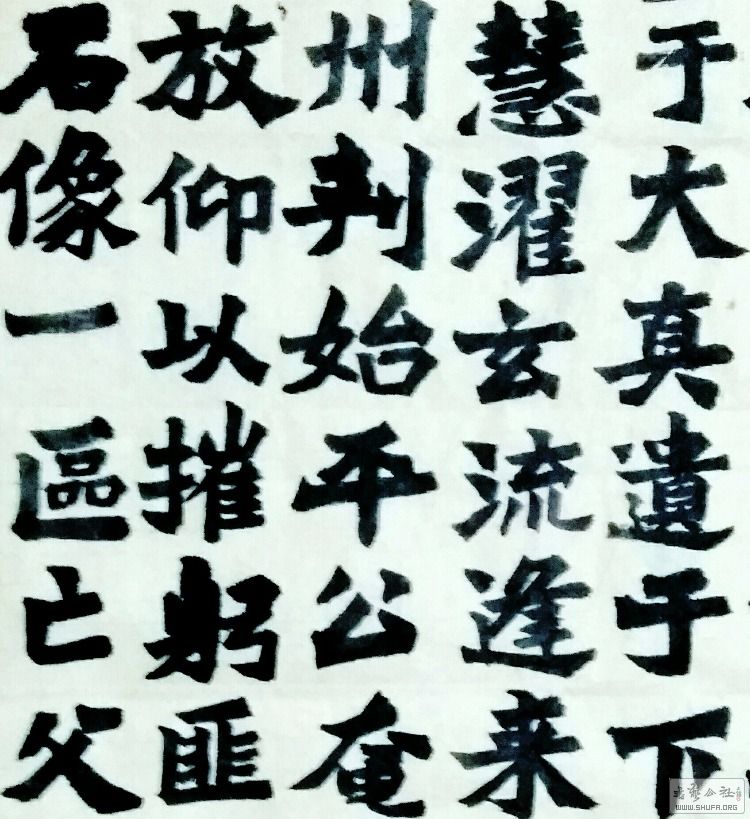 于大真遺于下
慧濯玄流逢来
州刾始平公奄
放仰以摧躬匪
石像一區亡父
WWW.SHUFA.ORG